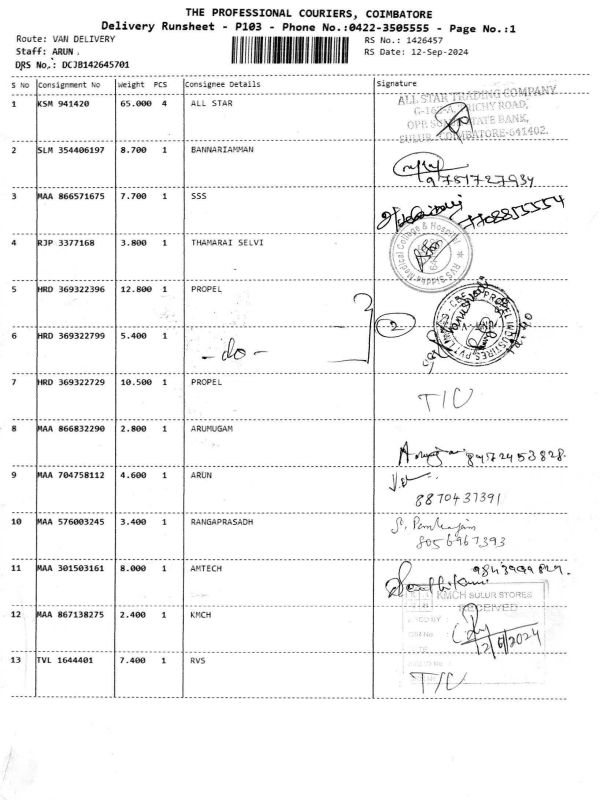 THE PROFESSIONAL COURIERS, COIMBATORE
Delivery Runsheet - P103 - Phone No.:0422-3505555 - Page No.:1
Route: VAN DELIVERY RS No.: 1426457
Staff: ARUN . RS Date: 12-Sep-2024
DRS No.: DCJB142645701
S No Consignment No Weight PCS Consignee Details Signature
1 KSM 941420 65.000 4 ALL STAR
ALL STAR TRADING COMPANY
TRICHY ROAD,
STATE BANK,
SULUR, COIMBATORE-641402.
2 SLM 354406197 8.700 1 BANNARIAMMAN
9751727934
3 MAA 866571675 7.700 1 SSS
4 RJP 3377168 3.800 1 THAMARAI SELVI
RVS Siddha Medical College & Hospital
5 HRD 369322396 12.800 1 PROPEL
2
PROPEL INDUSTRIES PVT LTD
6 HRD 369322799 5.400 1 - do -
7 HRD 369322729 10.500 1 PROPEL
T/C
8 MAA 866832290 2.800 1 ARUMUGAM
8472453828.
9 MAA 704758112 4.600 1 ARUN
8870437391
10 MAA 576003245 3.400 1 RANGAPRASADH
8056967393
11 MAA 301503161 8.000 1 AMTECH
KMCH SULUR STORES
RECEIVED
12 MAA 867138275 2.400 1 KMCH
13 TVL 1644401 7.400 1 RVS
T/C